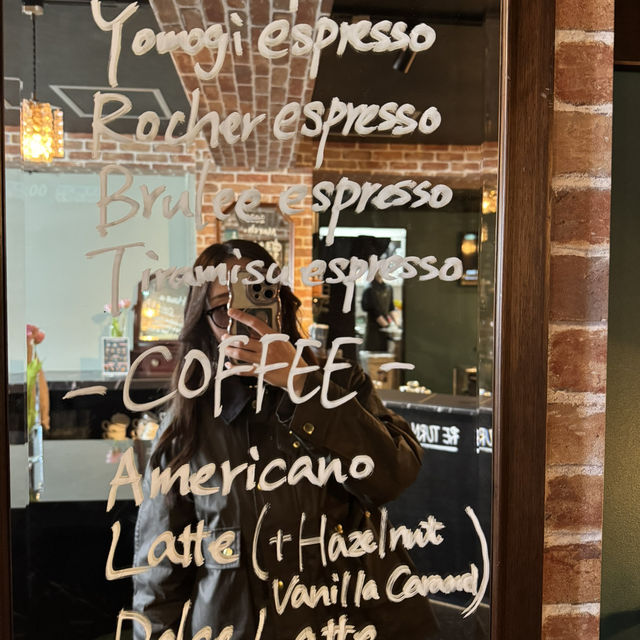 Yomogi espresso
Rocher espresso
Brulee espresso
Tiramisu espresso
- COFFEE -
Americano
Latte (+ Hazelnut
Vanilla Caramel)
Dolce Latte